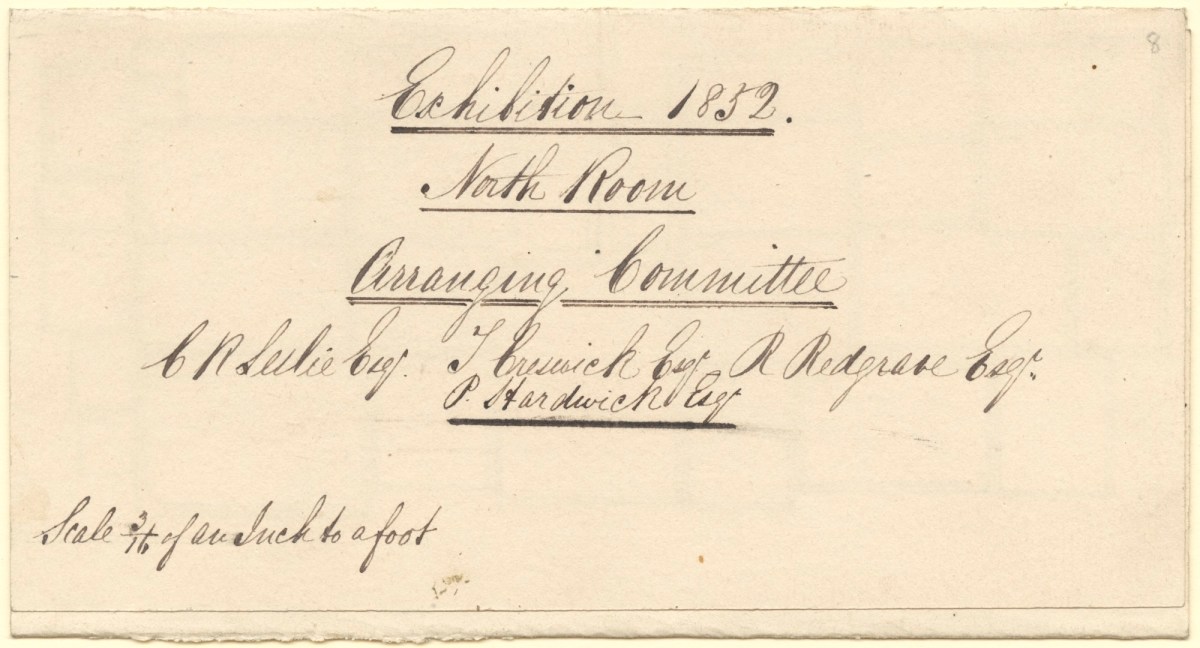 8
Exhibition 1852.
North Room
Arranging Committee
C R Leslie Esqr. T Creswick Esqr R Redgrave Esqr.
P. Hardwick Esqr
Scale 3/16 of an Inch to a foot